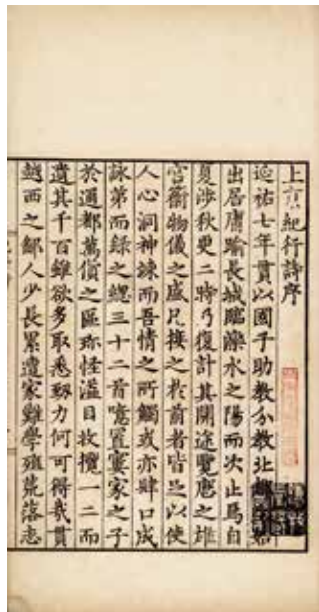 上京紀行詩序
延祐七年貫以國子助教分教北都
出居庸踰長城臨灤水之陽而次止焉自
夏涉秋更二時乃復計其關途覽歷之雄
宮籞物儀之盛凡接之於前者皆足以使
人心洞神竦而吾情之所觸或亦肆口成
詠第而錄之總三十二首噫置窶家之子
於通都萬貨之區珎怪溢目收攬一二而
遺其千百雖欲多取悉致力何可得哉貫
越西之鄙人少長累遭家難學殖荒落志